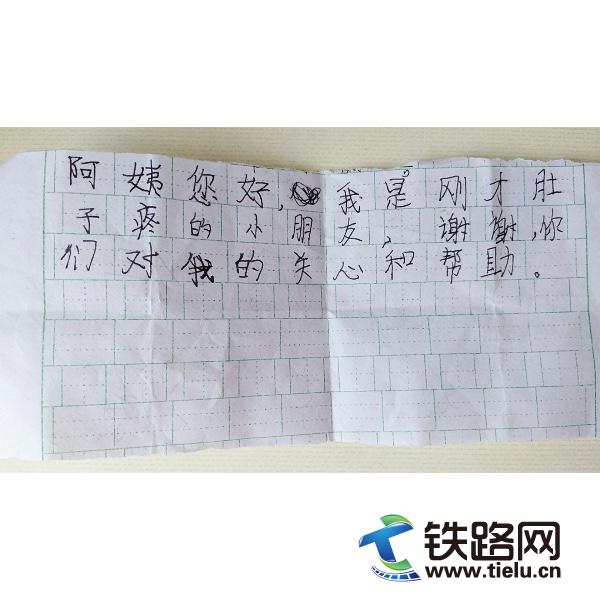 阿姨您好,我是刚才肚
子疼的小朋友,谢谢,你
们对我的关心和帮助。
铁路网
www.tielu.cn